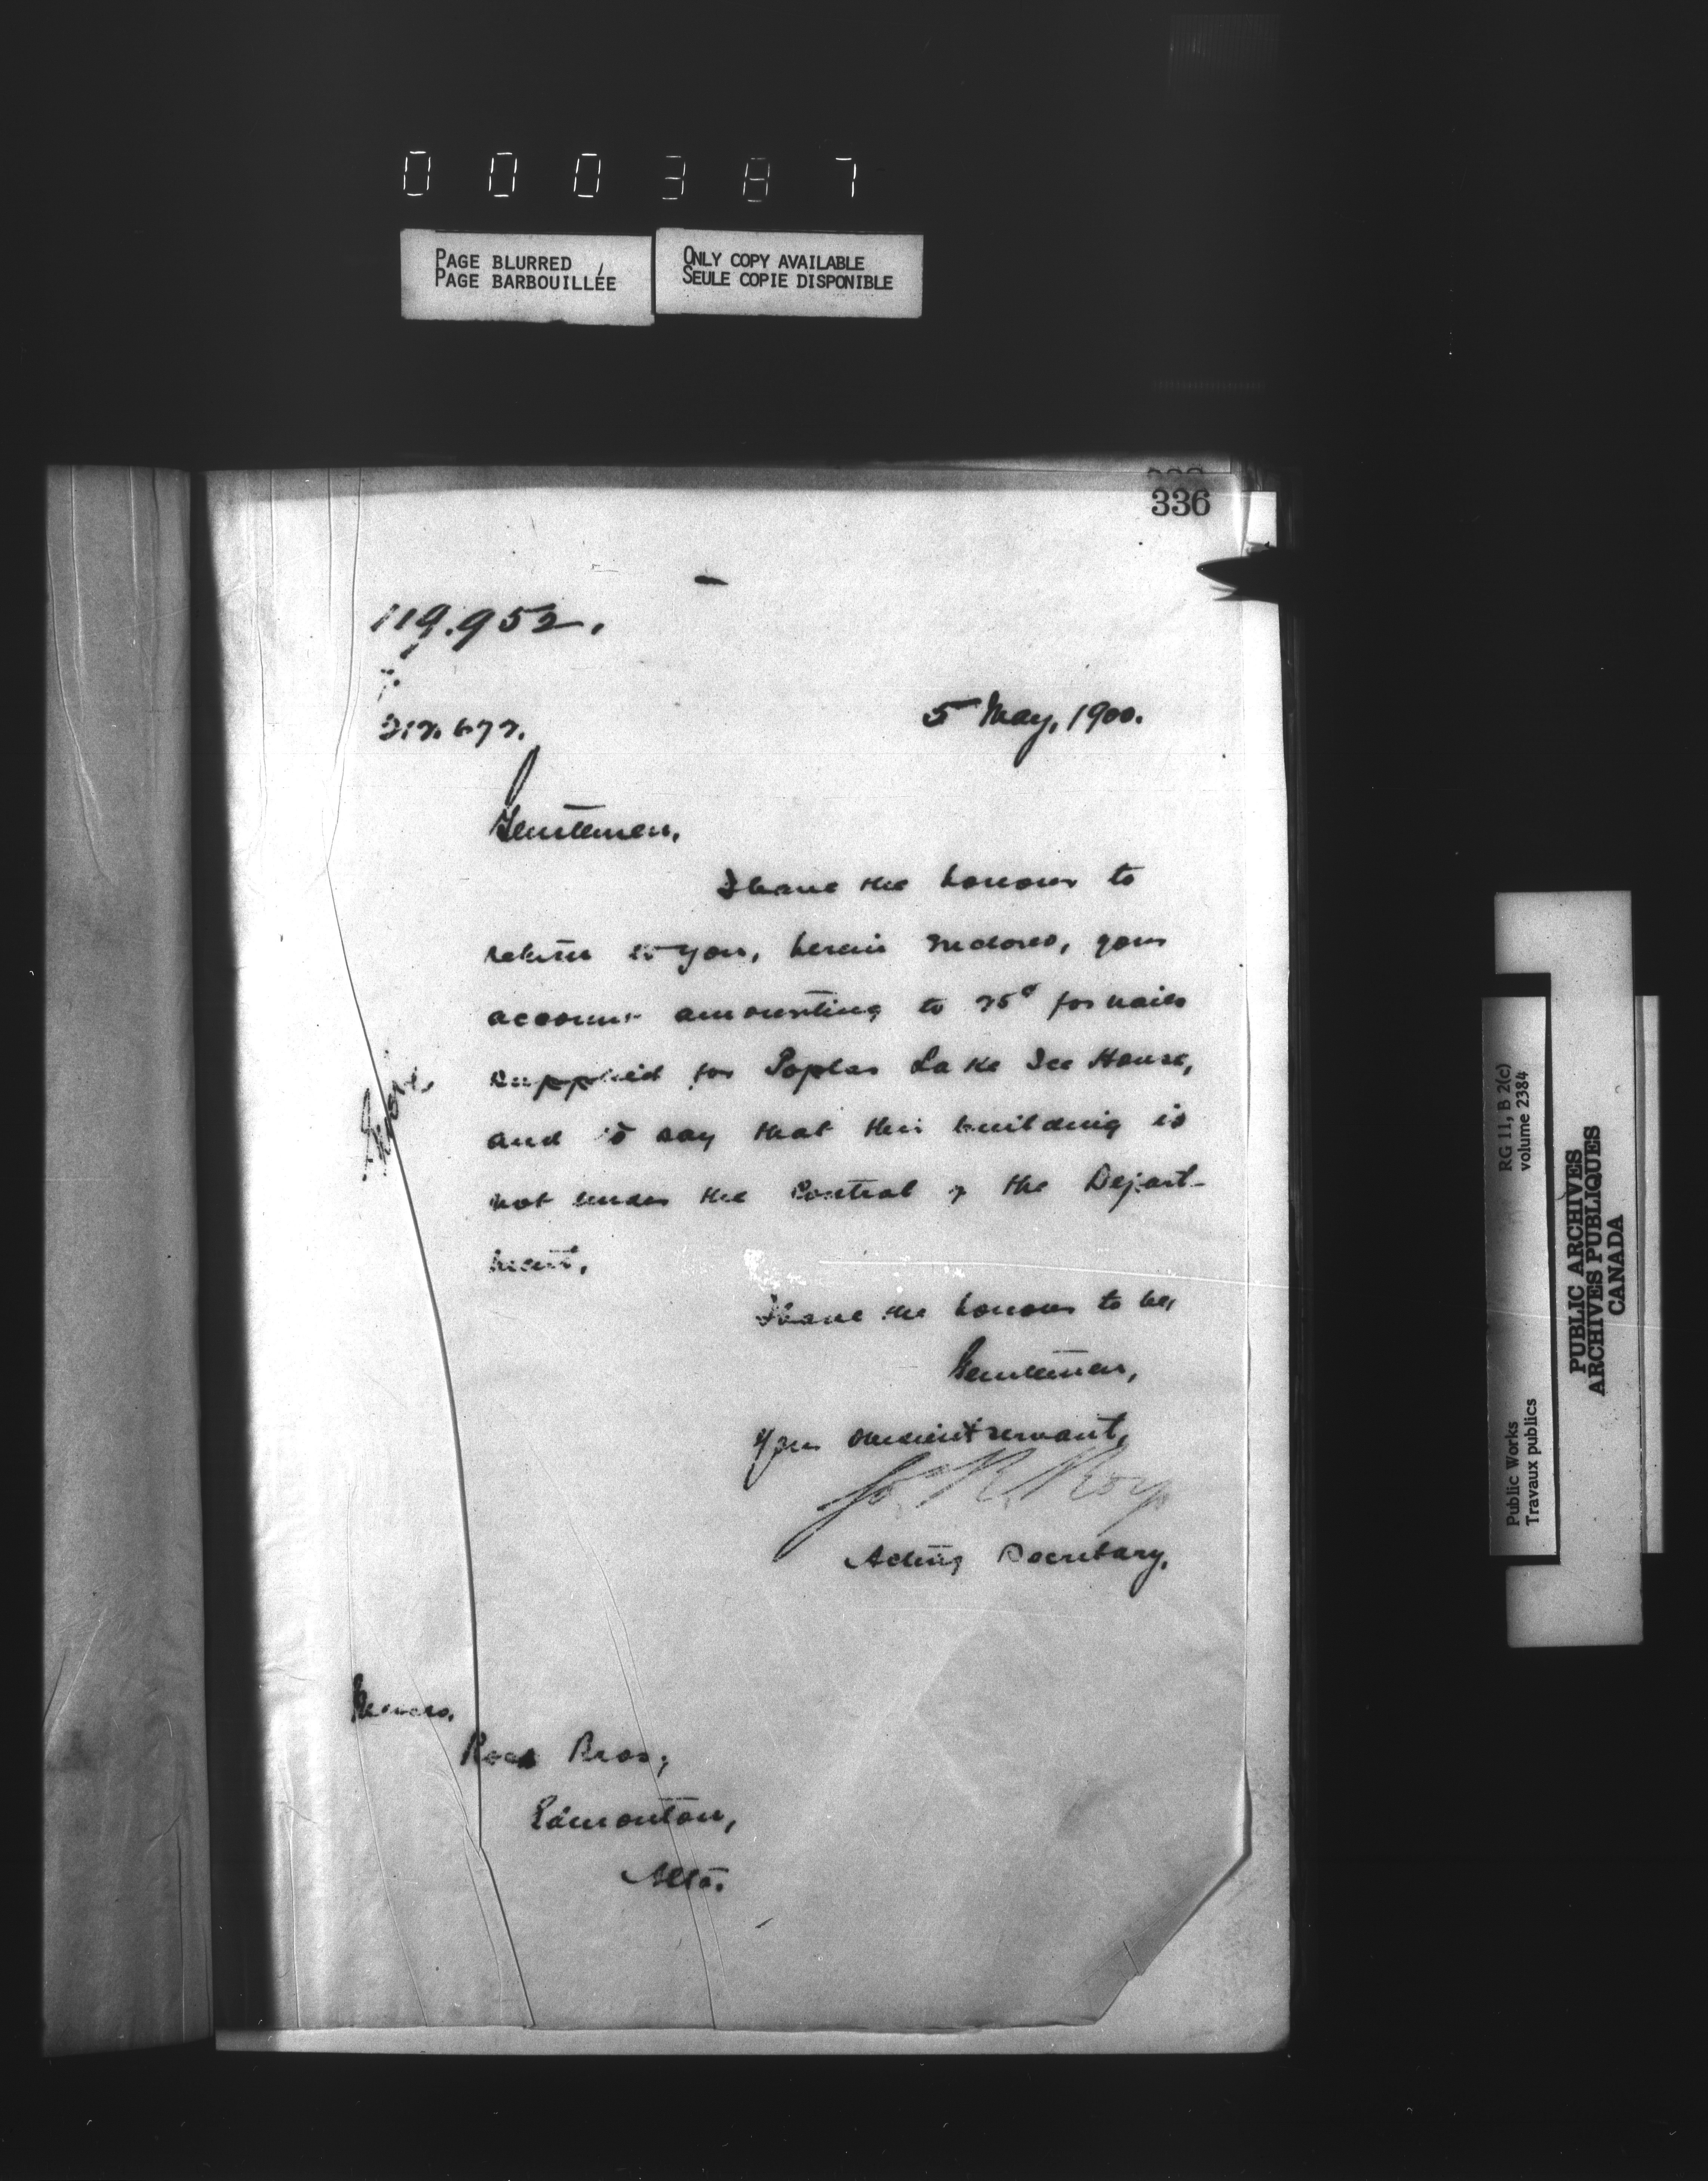 000387
PAGE BLURRED
PAGE BARBOUILLÉE
ONLY COPY AVAILABLE
SEULE COPIE DISPONIBLE
336
119.952.
5 May, 1900.
Gentlemen,
I have the honour to
return to you, herein enclosed, your
account amounting to 75¢ for nails
supplied for Poplar Lake Ice House,
and to say that this building is
not under the control of the Depart-
ment.
I have the honour to be,
Gentlemen,
Your obedient servant,
Jo. R. Roy
Acting Secretary.
Messrs.
Ross Bros;
Edmonton,
Alta.
RG 11, B 2(c)
volume 2384
Public Works
Travaux publics
PUBLIC ARCHIVES
ARCHIVES PUBLIQUES
CANADA